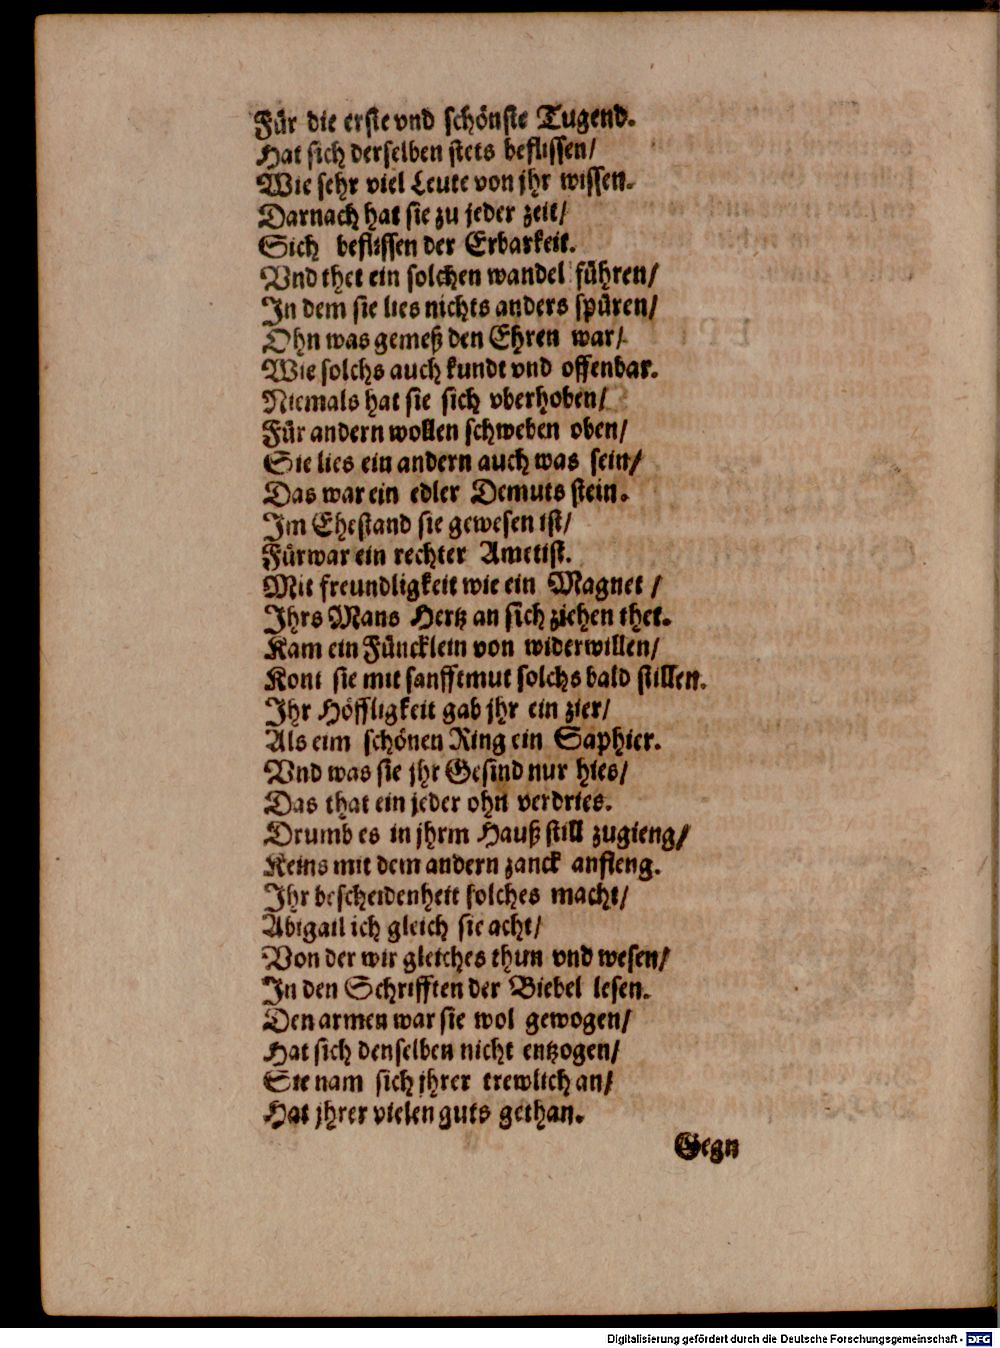 Für die erste vnd schönste Tugend.
Hat sich derselben stets beflissen/
Wie sehr viel Leute von jhr wissen.
Darnach hat sie zu jeder zeit/
Sich beflissen der Erbarkeit.
Vnd thet ein solchen wandel führen/
In dem sie lies nichts anders spüren/
Ohn was gemeß den Ehren war/
Wie solchs auch kundt vnd offenbar.
Niemals hat sie sich vberhoben/
Für andern wollen schweben oben/
Sie lies ein andern auch was sein/
Das war ein edler Demuts stein.
Im Ehestand sie gewesen ist/
Fürwar ein rechter Ametist.
Mit freundligkeit wie ein Magnet /
Ihrs Mans Hertz an sich ziehen thet.
Kam ein Füncklein von widerwillen/
Kont sie mit sanfftmut solchs bald stillen.
Ihr Höffligkeit gab jhr ein zier/
Als eim schönen Ring ein Saphier.
Vnd was sie jhr Gesind nur hies/
Das that ein jeder ohn verdries.
Drumb es in jhrm Hauß still zugieng/
Keins mit dem andern zanck anfieng.
Ihr bescheidenheit solches macht/
Abigail ich gleich sie acht/
Von der wir gleiches thun vnd wesen/
In den Schrifften der Biebel lesen.
Den armen war sie wol gewogen/
Hat sich denselben nicht entzogen/
Sie nam sich jhrer trewlich an/
Hat jhrer vielen guts gethan.
Gegn
Digitalisierung gefördert durch die Deutsche Forschungsgemeinschaft - DFG